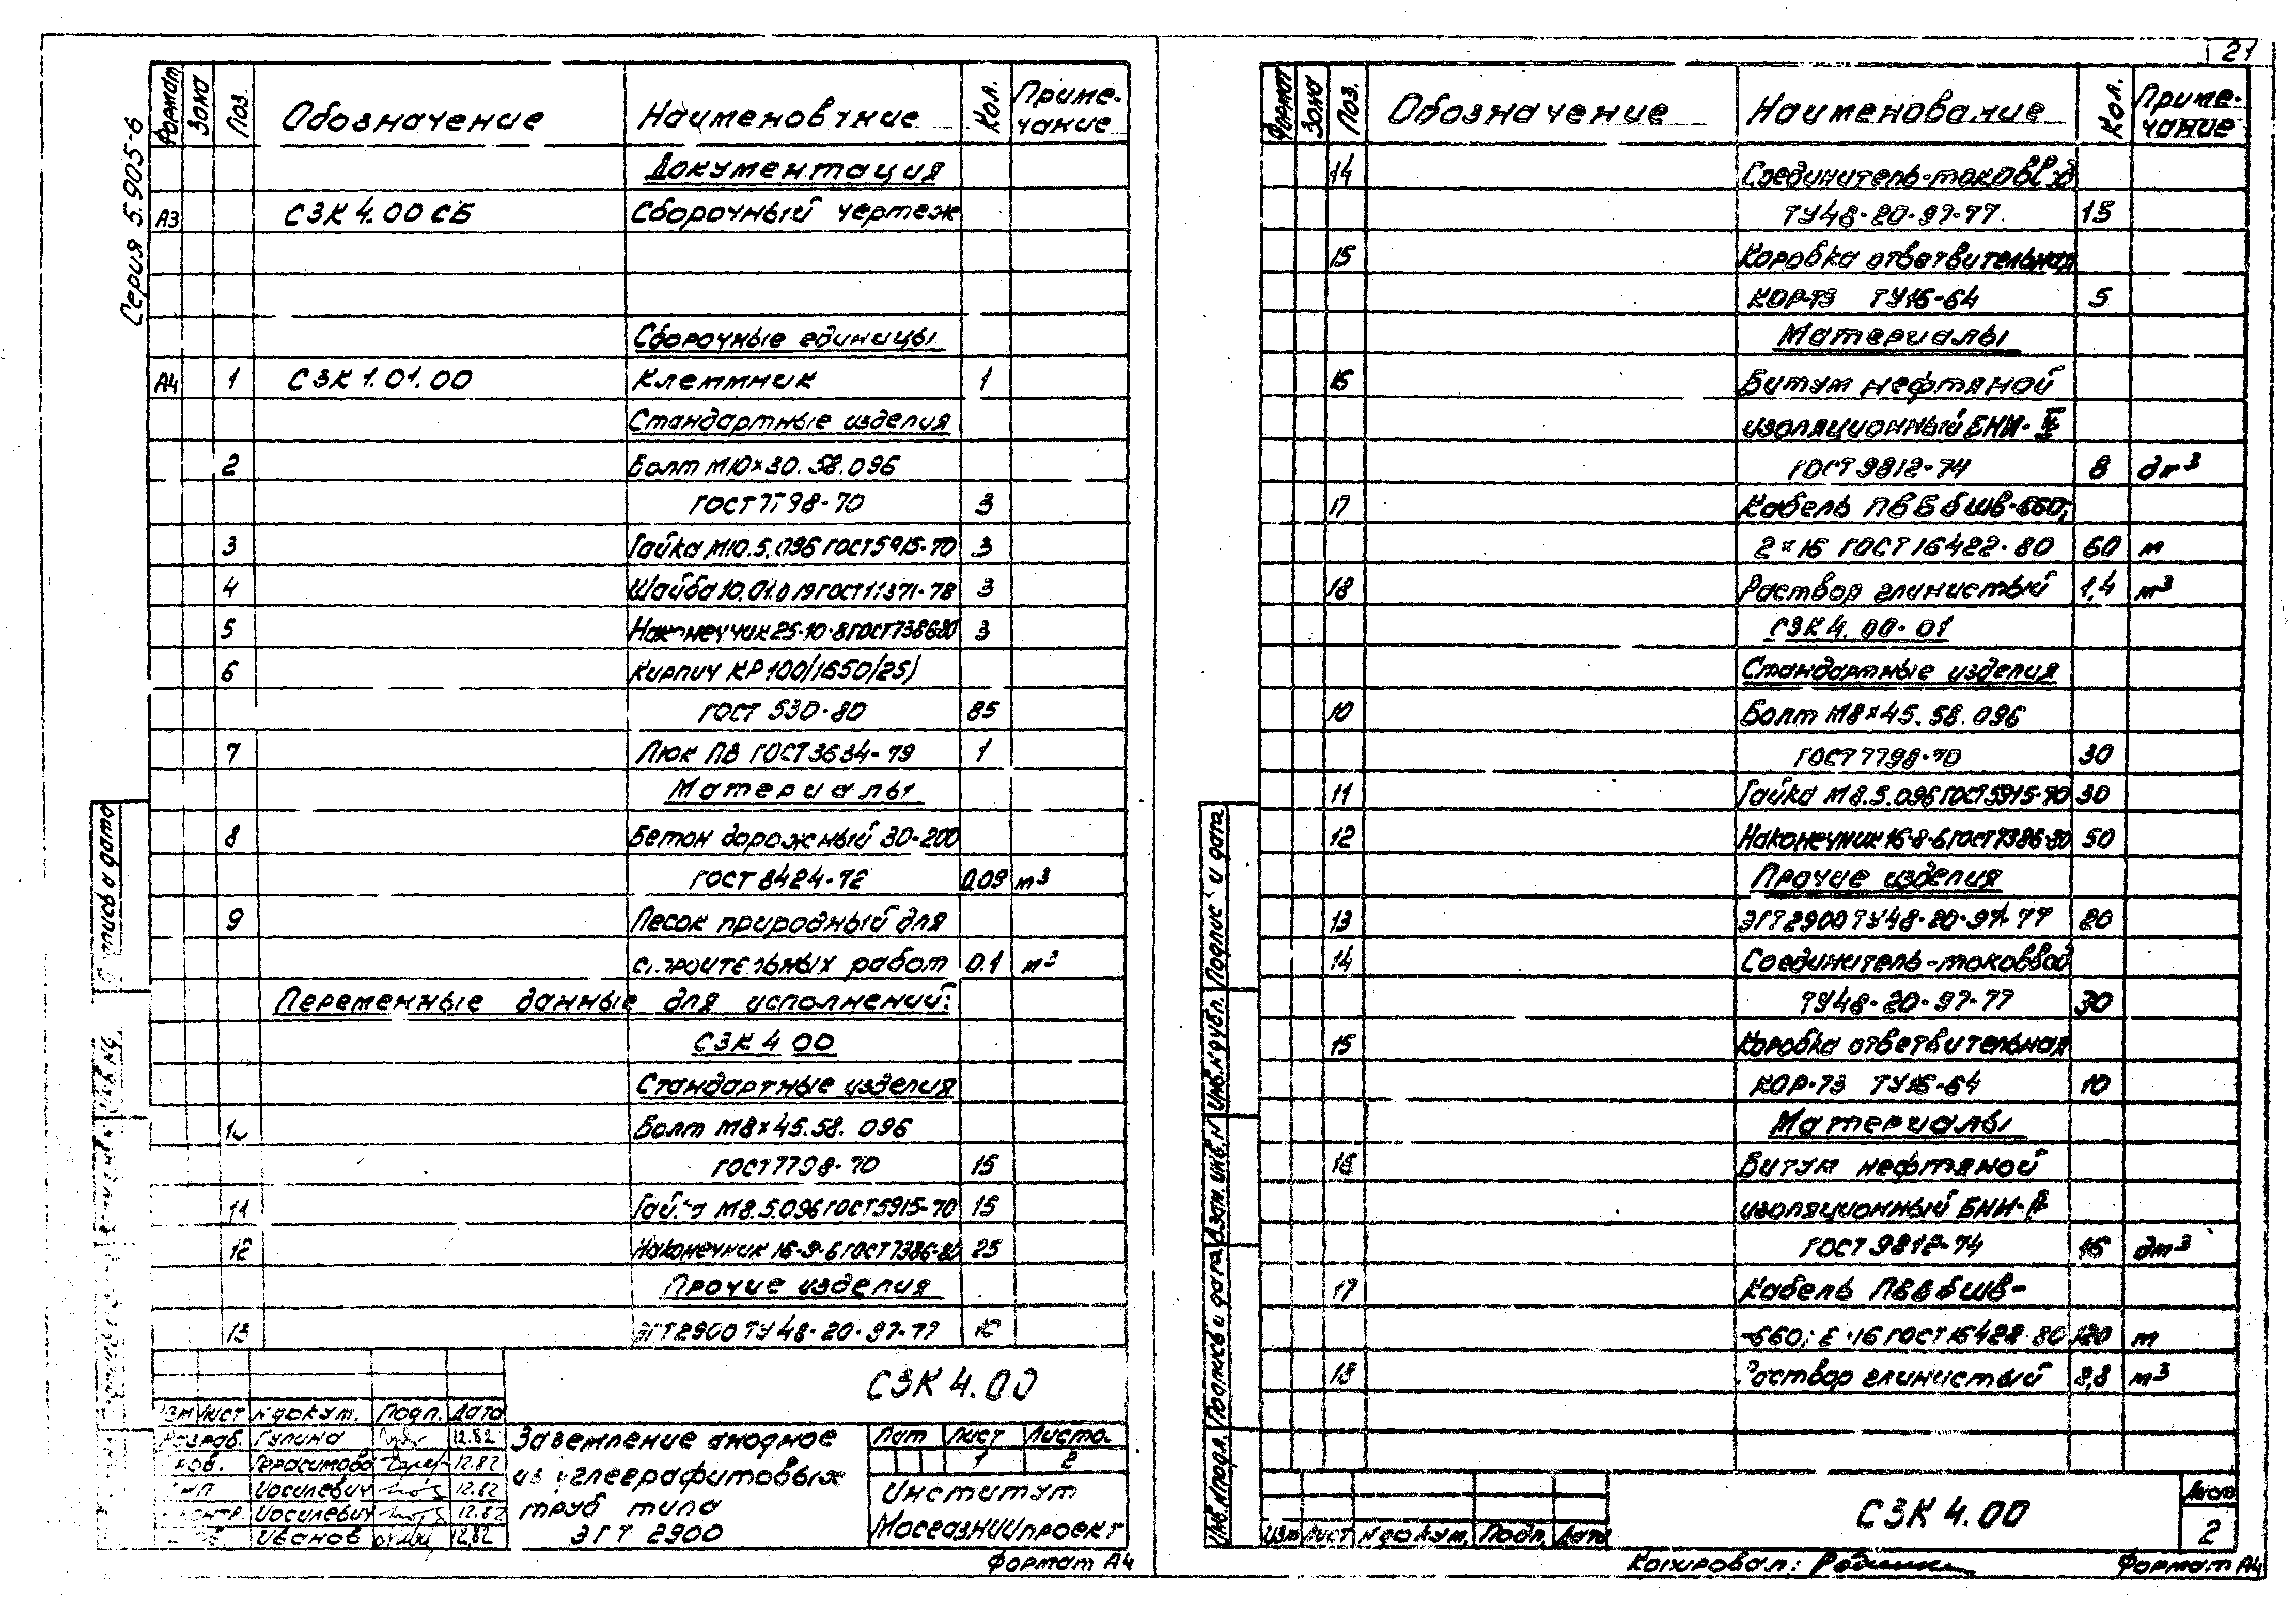 21
Серия 5.905-6
Формат Зона Поз. Обозначение Наименование Кол. Приме-чание
Документация
А3 СЗК 4.00 СБ Сборочный чертеж
Сборочные единицы
А4 1 СЗК 1.01.00 Клеммник 1
Стандартные изделия
2 Болт М10×30.58.096
ГОСТ 7798-70 3
3 Гайка М10.5.096 ГОСТ 5915-70 3
4 Шайба 10.01.019 ГОСТ 11371-78 3
5 Наконечник 25-10-8 ГОСТ 7386-80 3
6 Кирпич КР 100/1650/25/
ГОСТ 530-80 85
7 Люк ЛВ ГОСТ 3634-79 1
Материалы
8 Бетон дорожный 30-200
ГОСТ 8424-72 0.09 м³
9 Песок природный для
строительных работ 0.1 м³
Переменные данные для исполнений:
СЗК 4 00
Стандартные изделия
10 Болт М8×45.58.096
ГОСТ 7798-70 15
11 Гайка М8.5.096 ГОСТ 5915-70 15
12 Наконечник 16-8-6 ГОСТ 7386-80 25
Прочие изделия
13 ЭГТ 2900 ТУ 48-20-97-77 10
СЗК 4.00
Изм Лист № докум. Подп. Дата
Разраб. Гулина 12.82
Пров. Герасимова 12.82
Иосилевич 12.82
Иосилевич 12.82
Иванов 12.82
Заземление анодное
из углеграфитовых
труб типа
ЭГТ 2900
Лит Лист Листов
1 2
Институт
Мосгазниипроект
Формат А4
Формат Зона Поз. Обозначение Наименование Кол. Приме-чание
14 Соединитель-токоввод
ТУ 48-20-97-77. 15
15 Коробка ответвительная
КОР-73 ТУ 16-64 5
Материалы
16 Битум нефтяной
изоляционный БНИ-IV
ГОСТ 9812-74 8 дм³
17 Кабель ПВБбШв-660;
2×16 ГОСТ 16422-80 60 м
18 Раствор глинистый 1,4 м³
СЗК 4.00-01
Стандартные изделия
10 Болт М8×45.58.096
ГОСТ 7798-70 30
11 Гайка М8.5.096 ГОСТ 5915-70 30
12 Наконечник 16-8-6 ГОСТ 7386-80 50
Прочие изделия
13 ЭГТ 2900 ТУ 48-20-97-77 20
14 Соединитель-токоввод
ТУ 48-20-97-77 30
15 Коробка ответвительная
КОР-73 ТУ 16-64 10
Материалы
16 Битум нефтяной
изоляционный БНИ-IV
ГОСТ 9812-74 16 дм³
17 Кабель ПВВбШв-
-660; 2×16 ГОСТ 16428-80 120 м
18 Раствор глинистый 2,8 м³
Инв.№ подл. Подпись и дата Взам. инв. № Инв.№ дубл. Подпись и дата
Изм Лист № докум. Подп. Дата
СЗК 4.00
Лист
2
Копировал:
Формат А4